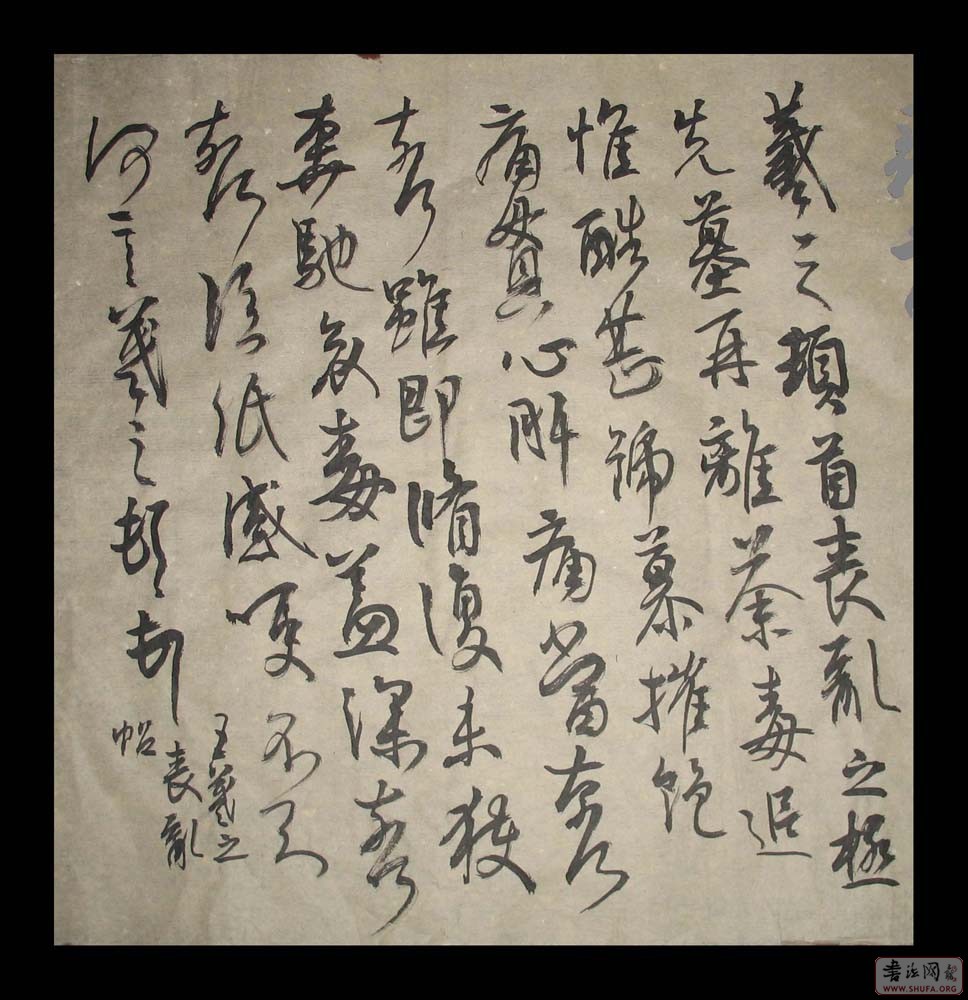 羲之頓首喪亂之極
先墓再離荼毒追
惟酷甚號慕摧絕
痛貫心肝痛當奈何
奈何雖即脩復未獲
奔馳哀毒益深奈何
奈何臨紙感哽不知
何言羲之頓首頓首
王羲之
喪亂
帖
書法网
WWW.SHUFA.ORG